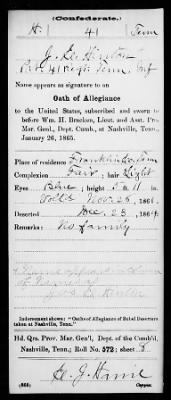 (Confederate.)
H. 41 Tenn
J. E. Hinton
Pvt. 41 Regt. Tenn. Inf
Name appears as signature to an
Oath of Allegiance
to the United States, subscribed and sworn to
before Wm. H. Bracken, Lieut. and Asst. Pro.
Mar. Gen'l., Dept. Cumb., at Nashville, Tenn.,
January 26, 1865.
Place of residence Franklin Co. Tenn
Complexion Fair, hair Light
Eyes Blue; height 5 ft 11 in
Vol'd Nov. 25, 1861.
Deserted Dec. 23, 1864.
Remarks: No family
Name appears in
Indorsement shows: "Oaths of Allegiance of Rebel Deserters
taken at Nashville, Tenn."
Hd. Qrs. Prov. Mar. Gen'l, Dept. of the Cumb'l,
Nashville, Tenn.; Roll No. 572; sheet 8
Copyist.